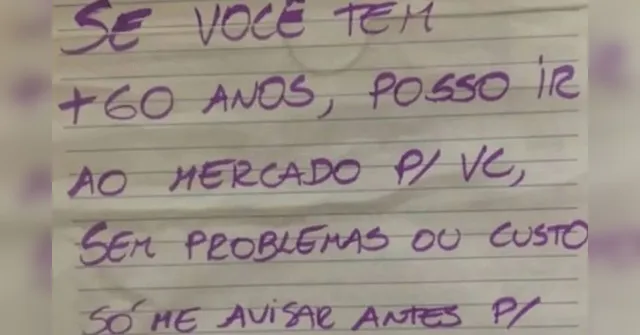 SE VOCÊ TEM
+60 ANOS, POSSO IR
AO MERCADO P/ VC,
SEM PROBLEMAS OU CUSTO
SÓ ME AVISAR ANTES P/